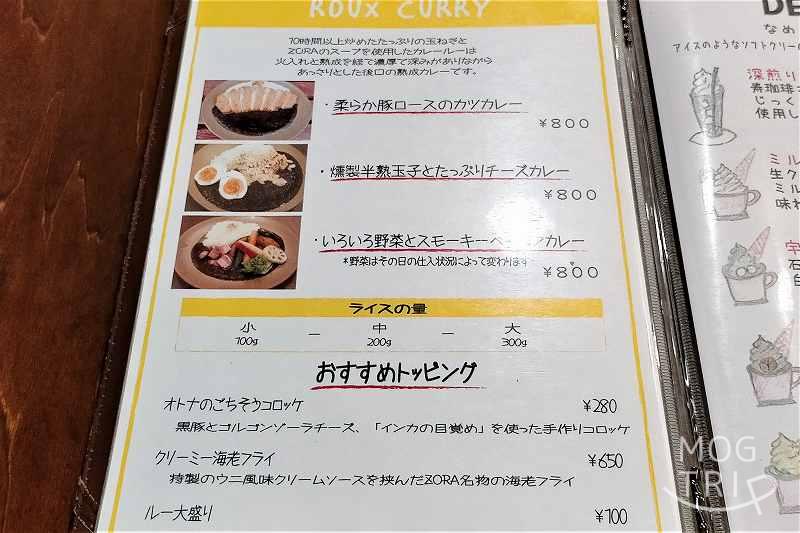 ROUX CURRY
10時間以上炒めたたっぷりの玉ねぎと
ZORAのスープを使用したカレールーは
火入れと熟成を経て濃厚で深みがありながら
あっさりとした後口の熟成カレーです。
・柔らか豚ロースのカツカレー
¥800
・燻製半熟玉子とたっぷりチーズカレー
¥800
・いろいろ野菜とスモーキーベ カレー
*野菜はその日の仕入状況によって変わります
¥800
ライスの量
小 ー 中 ー 大
100g 200g 300g
おすすめトッピング
オトナのごちそうコロッケ ¥280
黒豚とゴルゴンゾーラチーズ、「インカの目覚め」を使った手作りコロッケ
クリーミー海老フライ ¥650
特製のウニ風味クリームソースを挟んだZORA名物の海老フライ
ルー大盛り ¥100
DE
なめ
アイスのようなソフトクリーム
深煎り
寿珈琲
じっく
使用し
ミル
生ク
ミル
味わ
宇
石
白
MOG
TRIP